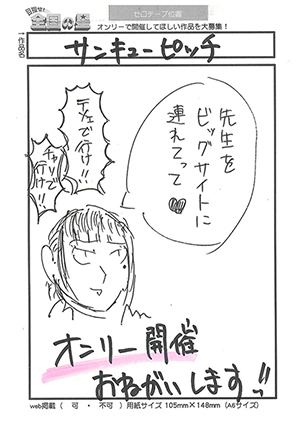 目指せ!
全国の星
セロテープ位置
オンリーで開催してほしい作品を大募集!
↑作品名
サンキューピッチ
先生を
ビッグサイトに
連れてって♥
チャリで
行け!!
オンリー開催
おねがいします!!
web掲載 ( 可 ・ 不可 ) 用紙サイズ 105mm×148mm (A6サイズ)